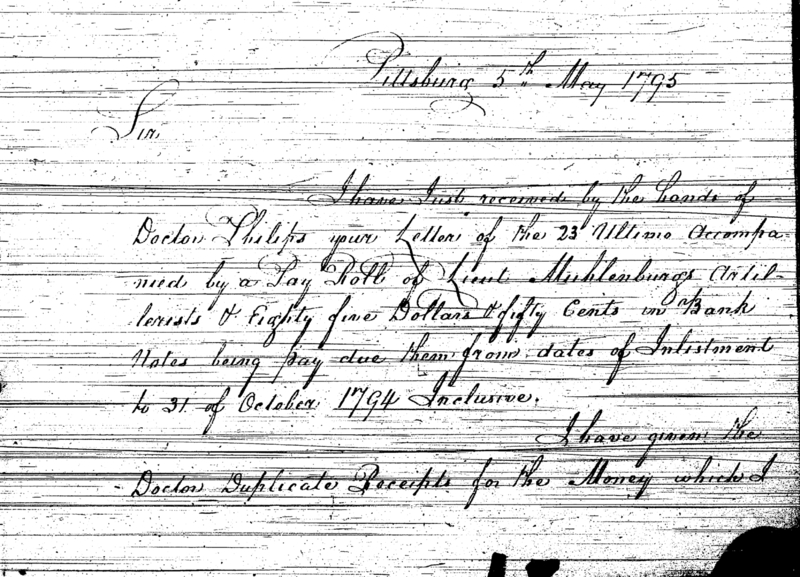 Pittsburg 5th May 1795
Sir
I have Just received by the hands of
Doctor Philips your Letter of the 23 Ultimo Accompa-
nied by a Pay Roll of Lieut Muhlenburgs Artil-
lerists & Eighty five Dollars & fifty Cents in Bank
Notes being pay due them from dates of Inlistment
to 31 of October 1794 Inclusive.
I have given the
Doctor Duplicate Receipts for the Money which I